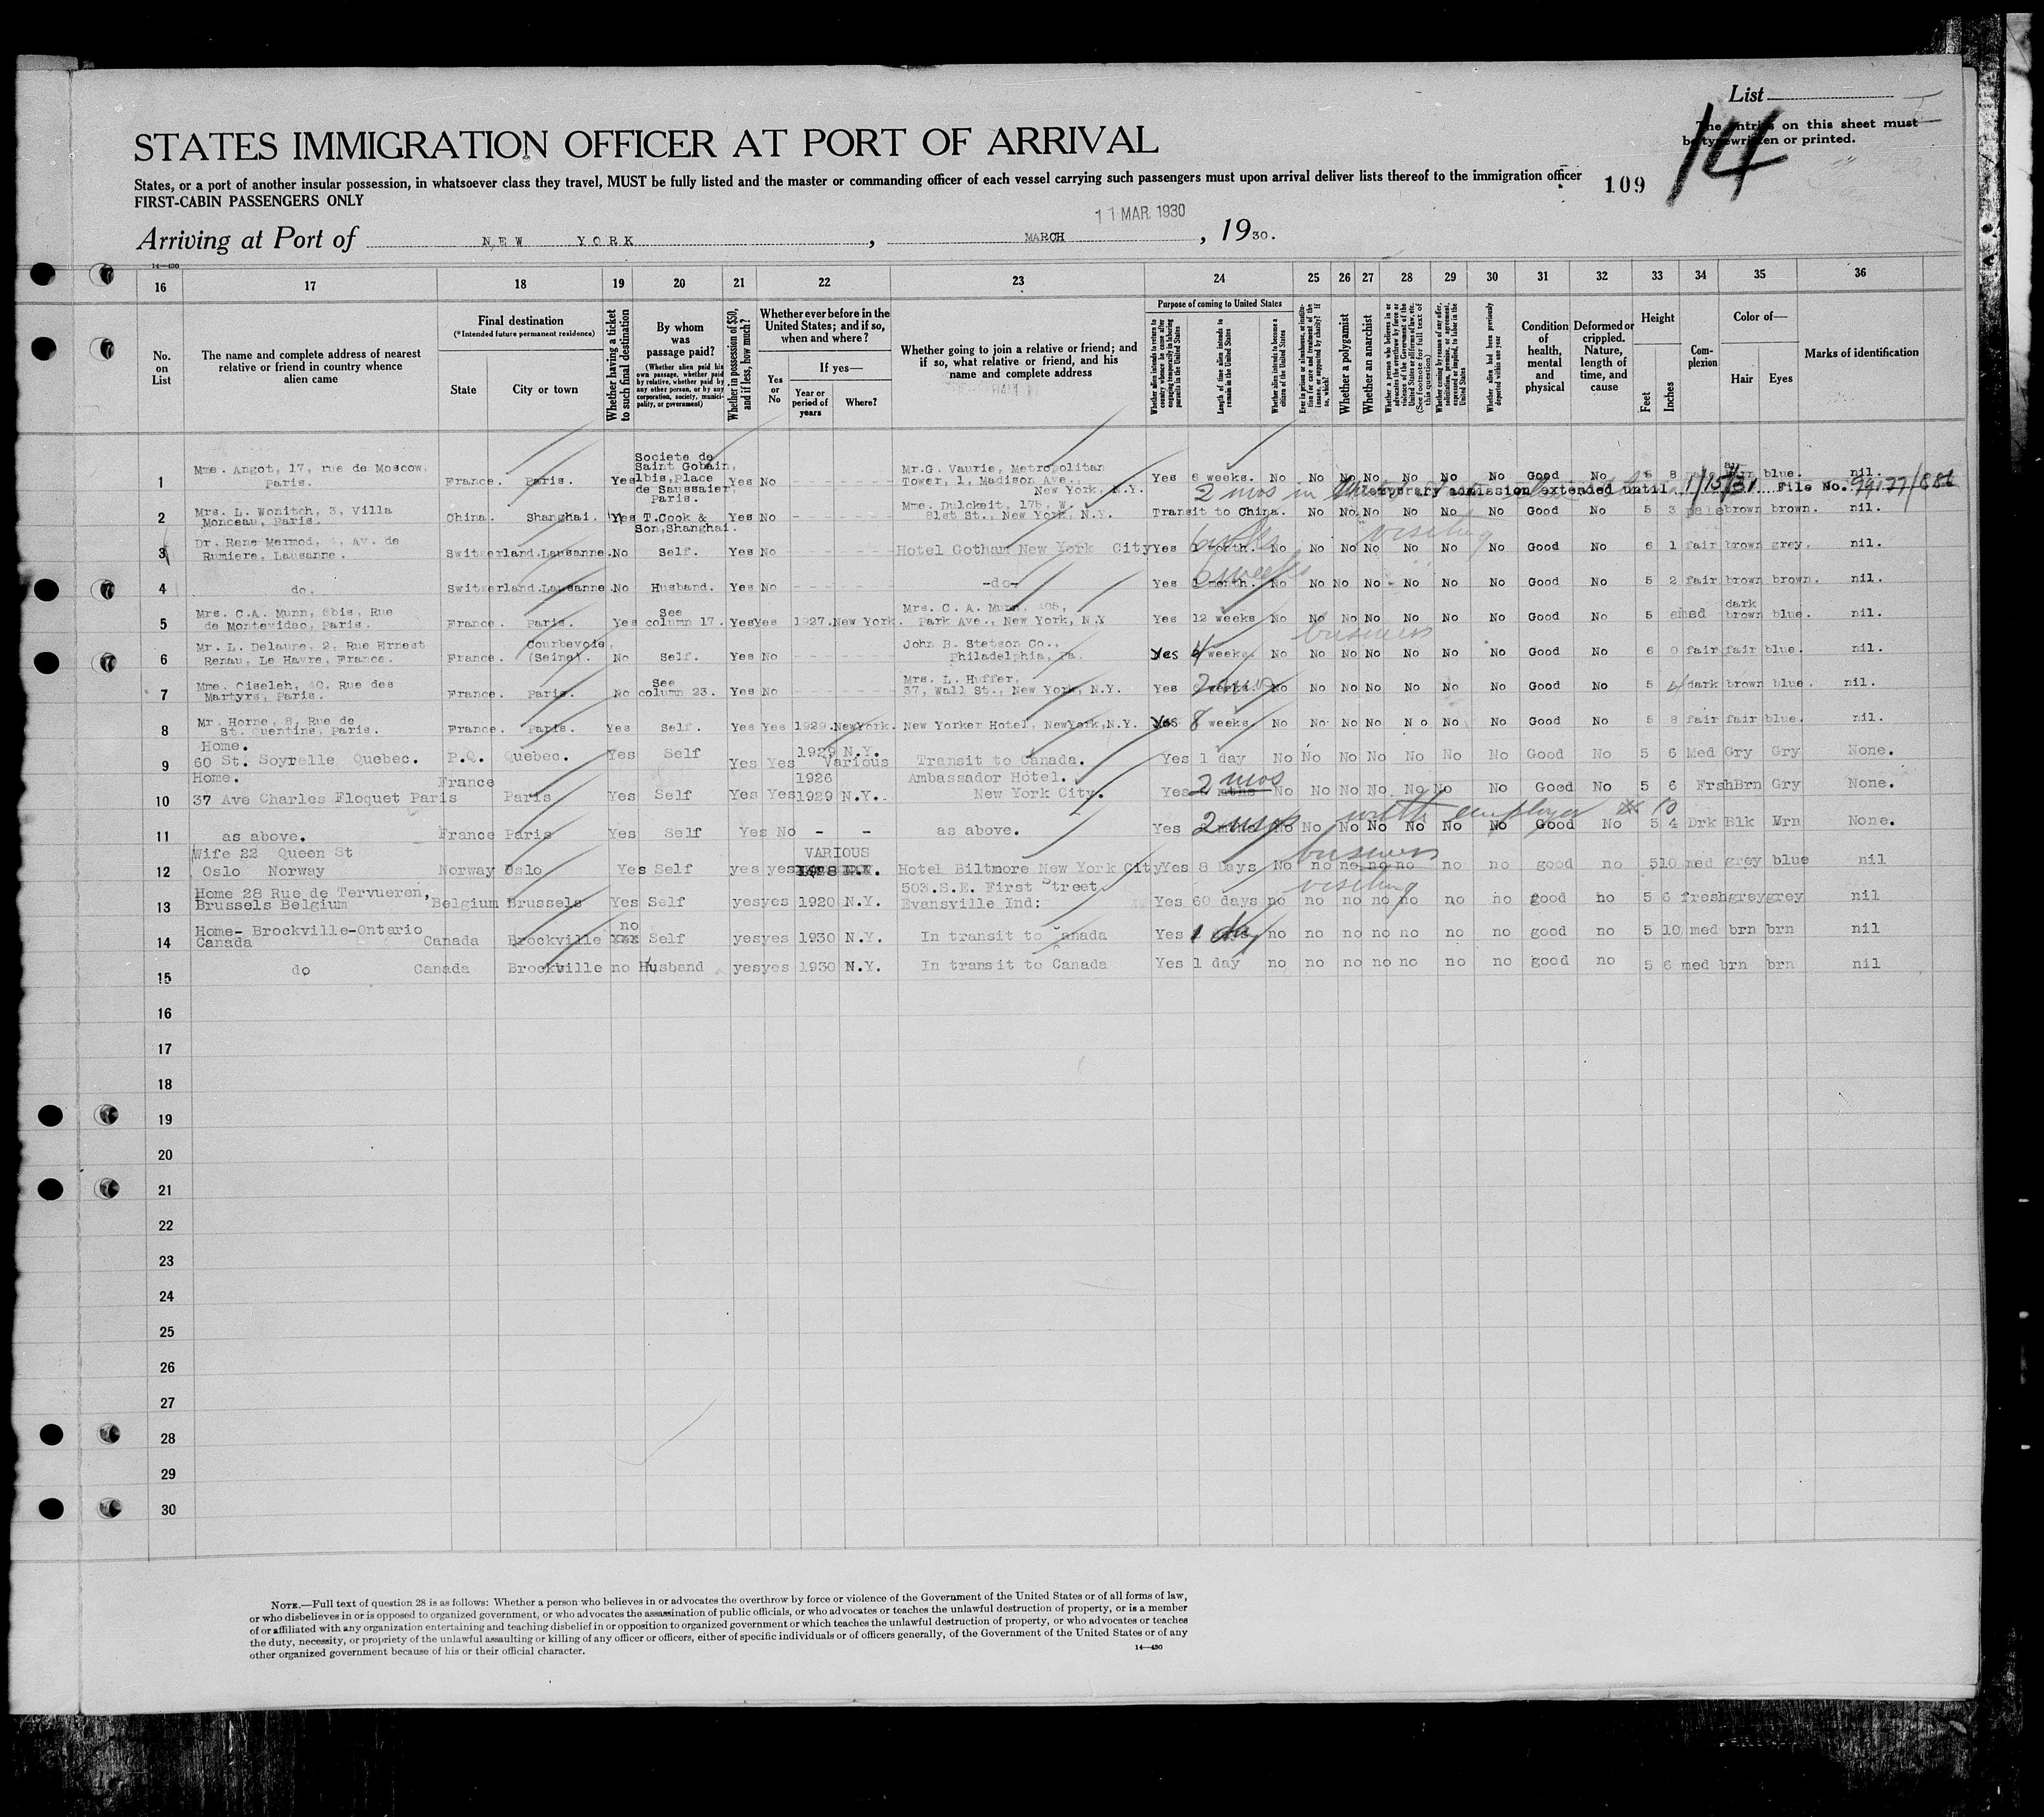 List
The entries on this sheet must
be typewritten or printed.
14
STATES IMMIGRATION OFFICER AT PORT OF ARRIVAL
States, or a port of another insular possession, in whatsoever class they travel, MUST be fully listed and the master or commanding officer of each vessel carrying such passengers must upon arrival deliver lists thereof to the immigration officer
FIRST-CABIN PASSENGERS ONLY
109
11 MAR 1930
Arriving at Port of NEW YORK, MARCH, 1930.
14—430
16 17 18 19 20 21 22 23 24 25 26 27 28 29 30 31 32 33 34 35 36
No. on List
The name and complete address of nearest relative or friend in country whence alien came
Final destination (*Intended future permanent residence)
State City or town
Whether having a ticket to such final destination
By whom was passage paid? (Whether alien paid his own passage, whether paid by relative, whether paid by any other person, or by any corporation, society, municipality, or government)
Whether in possession of $50, and if less, how much?
Whether ever before in the United States; and if so, when and where?
Yes or No If yes— Year or period of years Where?
Whether going to join a relative or friend; and if so, what relative or friend, and his name and complete address
Purpose of coming to United States
Whether alien intends to return to country whence he came after engaging temporarily in laboring pursuits in the United States
Length of time alien intends to remain in the United States
Whether alien intends to become a citizen of the United States
Ever in prison or almshouse, or institution for care and treatment of the insane, or supported by charity? If so, which?
Whether a polygamist
Whether an anarchist
Whether a person who believes in or advocates the overthrow by force or violence of the Government of the United States or all forms of law, etc. (See footnote for full text of this question)
Whether coming by reason of any offer, solicitation, promise, or agreement, expressed or implied, to labor in the United States
Whether alien had been previously deported within one year
Condition of health, mental and physical
Deformed or crippled. Nature, length of time, and cause
Height Feet Inches
Complexion
Color of— Hair Eyes
Marks of identification
1 Mme. Angot, 17, rue de Moscow. Paris. France. Paris. Yes Societe de Saint Gobain, 1bis, Place de Saussaier, Paris. Yes No Mr.G. Vaurie, Metropolitan Tower, 1, Madison Ave., New York, N.Y. Yes 6 weeks. No No No No No No No Good No 5 8 blue. nil.
2 mos in
Temporary admission extended until 1/15/31 File No.
2 Mrs. L. Wonitch, 3, Villa Monceau, Paris. China. Shanghai. Yes T.Cook & Son, Shanghai. Yes No Mme. Dulckeit, 175, W. 81st St., New York, N.Y. Transit to China. No No No No No No Good No 5 3 pale brown brown. nil.
visiting
3 Dr. Rene Mermod, Av. de Rumiere, Lausanne. Switzerland. Lausanne. No Self. Yes No Hotel Gotham New York City Yes 1 month. No No No No No No No Good No 6 1 fair brown grey. nil.
6 weeks
4 do. Switzerland. Lausanne. No Husband. Yes No -do- Yes 1 month. No No No No No No No Good No 5 2 fair brown brown. nil.
5 Mrs. C.A. Munn, 8bis, Rue de Montevideo, Paris. France. Paris. Yes See column 17. Yes Yes 1927. New York. Mrs. C. A. Munn, 405, Park Ave., New York, N.Y Yes 12 weeks No No No No No No No Good No 5 med dark brown blue. nil.
business
6 Mr. L. Delaure, 2, Rue Ernest Renau, Le Havre, France. France. Courbevoie, (Seine). No Self. Yes No John B. Stetson Co., Philadelphia, Pa. Yes 4 weeks. No No No No No No No Good No 6 0 fair fair blue. nil.
7 Mme. Ciseleh, 40, Rue des Martyrs, Paris. France. Paris. No See column 23. Yes No Mrs. L. Huffer, 37, Wall St., New York, N.Y. Yes 2 mos No No No No No No No Good No 5 4 dark brown blue. nil.
8 Mr. Horne, 8, Rue de St. Quentins, Paris. France. Paris. Yes Self. Yes Yes 1929. NewYork. New Yorker Hotel, NewYork, N.Y. Yes 8 weeks. No No No No No No No Good No 5 8 fair fair blue. nil.
9 Home. 60 St. Soyrelle Quebec. P.Q. Quebec. Yes Self Yes Yes 1929 N.Y. Various Transit to Canada. Yes 1 day No No No No No No No Good No 5 6 Med Gry Gry None.
10 Home. 37 Ave Charles Floquet Paris France Paris Yes Self Yes Yes 1926 1929 N.Y. Ambassador Hotel. New York City. Yes 2 mos No No No No No No No Good No 5 6 Frsh Brn Gry None.
with employer # 10
11 as above. France Paris Yes Self Yes No - - as above. Yes 2 mos No No No No No No No Good No 5 4 Drk Blk Mrn None.
business
12 Wife 22 Queen St Oslo Norway Norway Oslo Yes Self yes yes VARIOUS N.Y. Hotel Biltmore New York City Yes 8 Days No no no no no no no good no 5 10 med grey blue nil
visiting
13 Home 28 Rue de Tervueren, Brussels Belgium Belgium Brussels Yes Self yes yes 1920 N.Y. 503.S.E. First Street Evansville Ind: Yes 60 days no no no no no no no good no 5 6 fresh grey grey nil
14 Home- Brockville-Ontario Canada Canada Brockville no Self yes yes 1930 N.Y. In transit to Canada Yes 1 day no no no no no no no good no 5 10 med brn brn nil
15 do Canada Brockville no Husband yes yes 1930 N.Y. In transit to Canada Yes 1 day no no no no no no no good no 5 6 med brn brn nil
16
17
18
19
20
21
22
23
24
25
26
27
28
29
30
NOTE.—Full text of question 28 is as follows: Whether a person who believes in or advocates the overthrow by force or violence of the Government of the United States or of all forms of law,
or who disbelieves in or is opposed to organized government, or who advocates the assassination of public officials, or who advocates or teaches the unlawful destruction of property, or is a member
of or affiliated with any organization entertaining and teaching disbelief in or opposition to organized government or which teaches the unlawful destruction of property, or who advocates or teaches
the duty, necessity, or propriety of the unlawful assaulting or killing of any officer or officers, either of specific individuals or of officers generally, of the Government of the United States or of any
other organized government because of his or their official character.
14—430